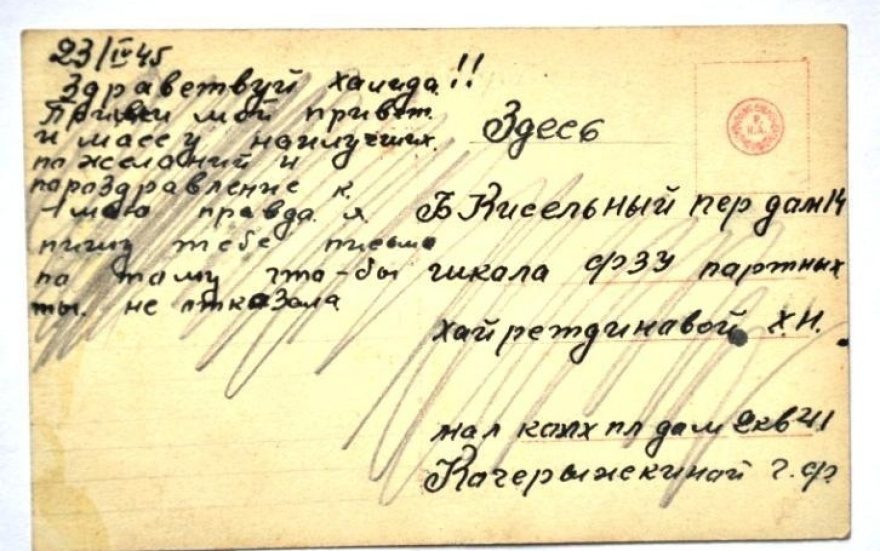 23/IV 45
Здраветвуй халида!!
Прими мой привет.
и массу наилучших.
пожеланий и
пароздравление к.
1 маю правда. я.
пишу тебе письмо
по таму что-бы
ты. не отказала
Здесь
Б Кисельный пер дам 14
шкала ФЗУ партных
хайретдинавой Х.Н.
мал колх пл дам 2 кв 41
Качерыжекиной Г.Ф